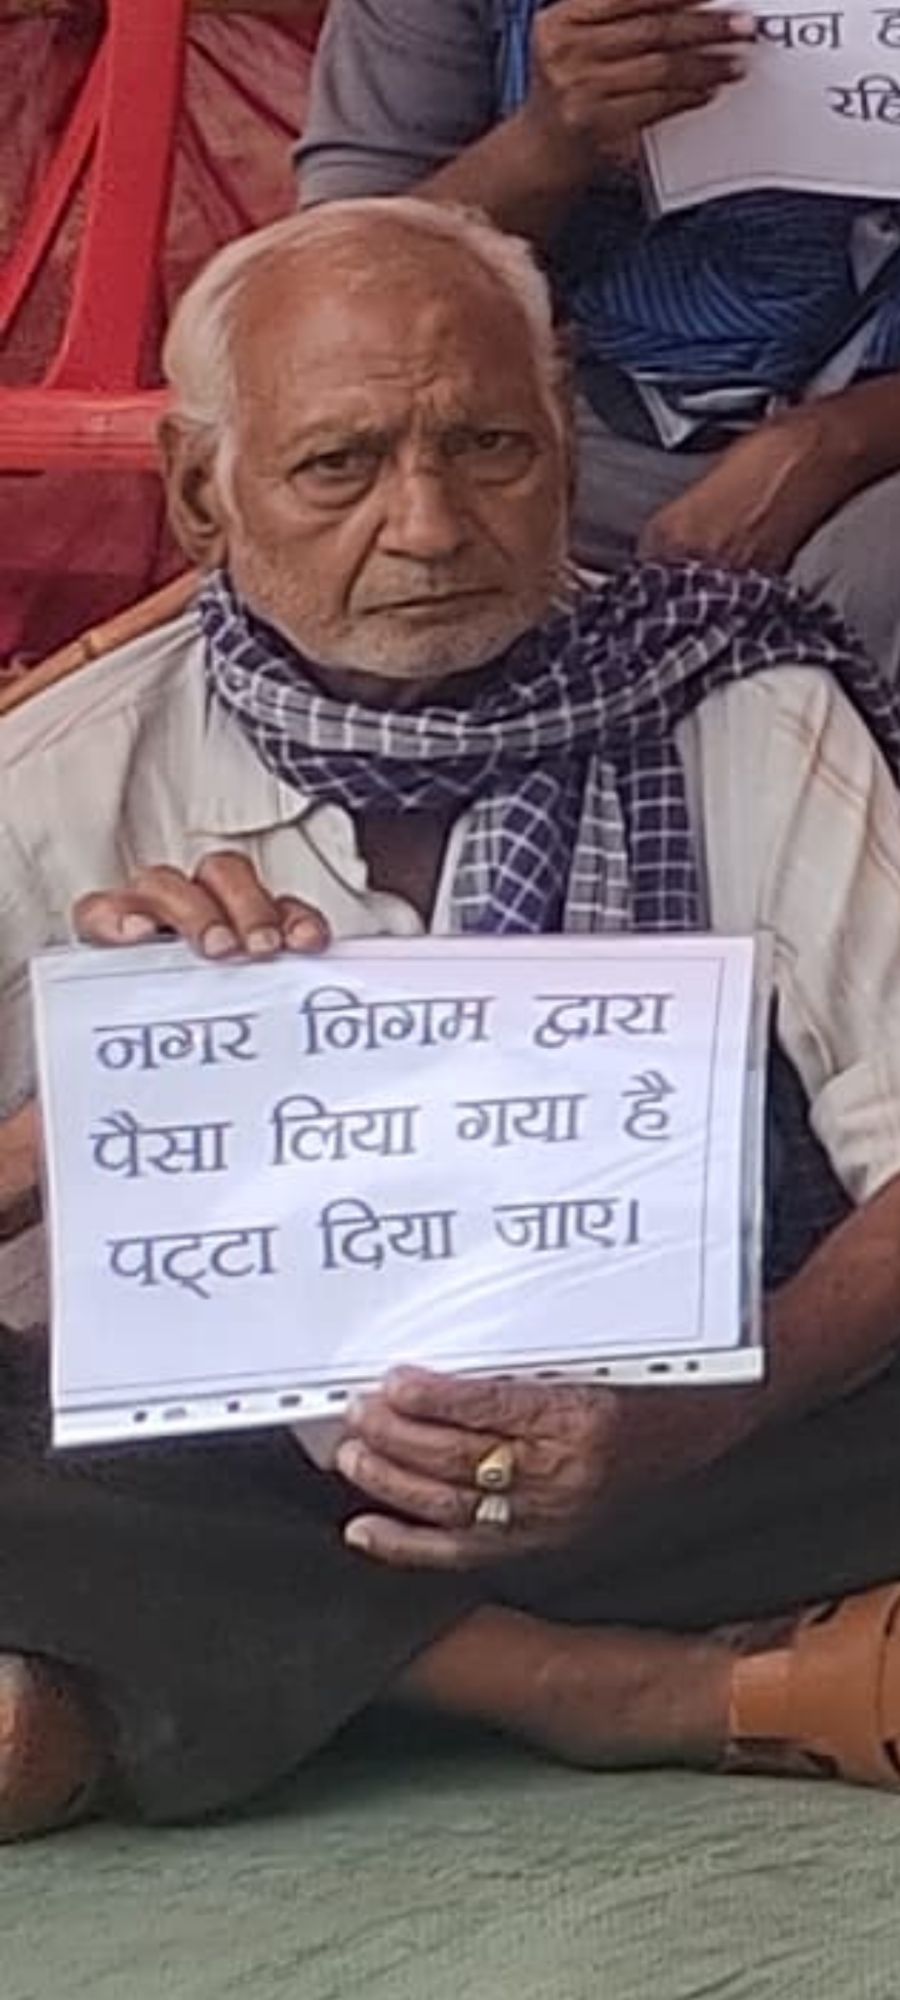 रहि
नगर निगम द्वारा
पैसा लिया गया है
पट्टा दिया जाए।